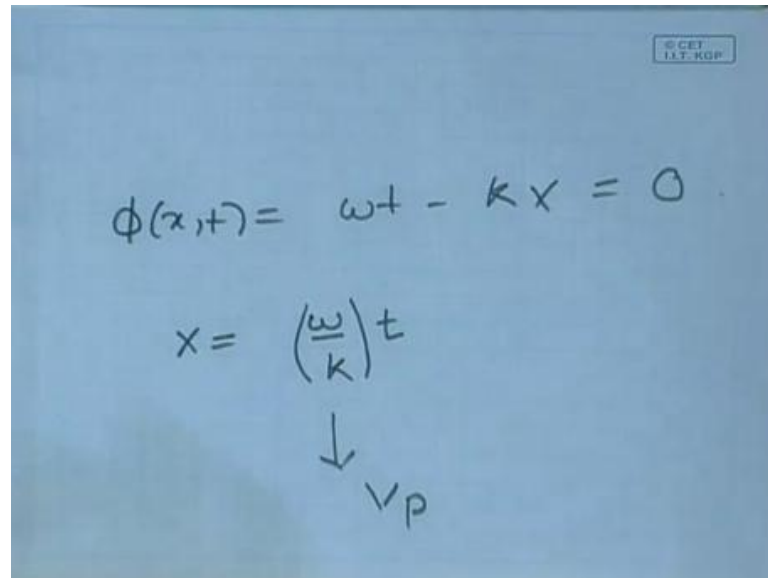 © CET
I.I.T. KGP
ϕ(x,t) = ωt - kx = 0
x = (ω/k) t
↓
Vp